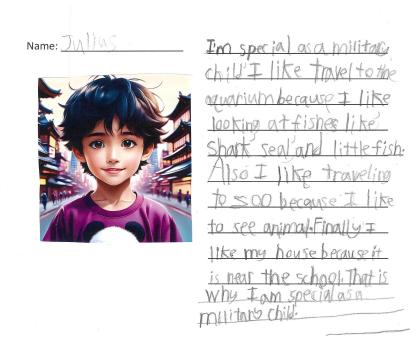 Name: Julius
I'm special as a military
child I like travel to the
aquarium because I like
looking at fishes like
Shark seal and little fish.
Also I like traveling
to soo because I like
to see animal. Finally I
like my house because it
is near the school. That is
why I am special as a
military child.